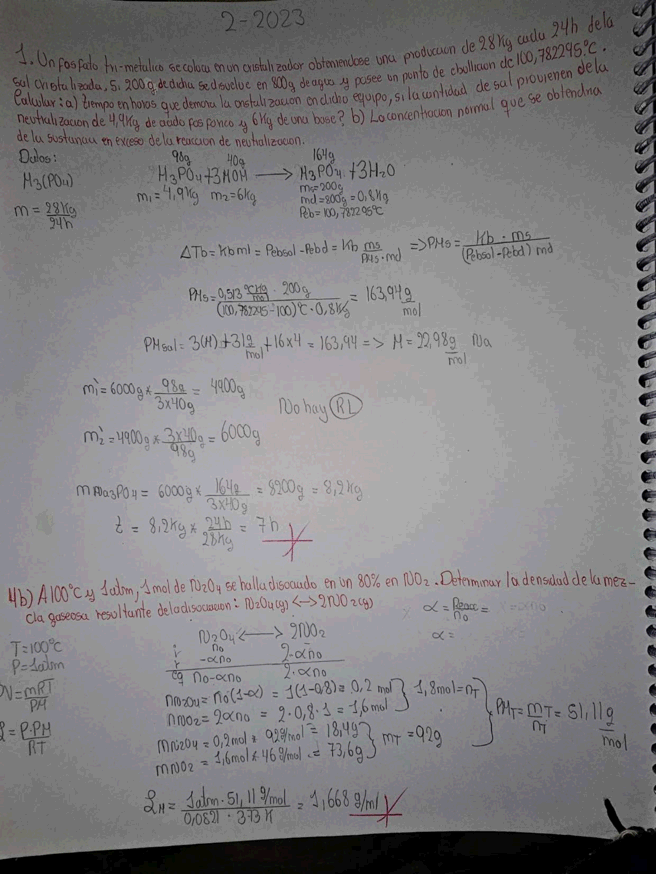 2-2023
1. Un fosfato tri-metalico se coloca en un cristalizador obteniendose una produccion de 28Kg cada 24h de la
sal cristalizada, si 200g de dicha se disuelve en 800g de agua y posee un punto de ebullicion de 100,782295°C.
Calcular: a) tiempo en horas que demora la cristalizacion en dicho equipo, si la cantidad de sal provienen de la
neutralizacion de 4,9Kg de acido fosforico y 6Kg de una base? b) La concentracion normal que se obtendria
de la sustancia en exceso de la reaccion de neutralizacion.
Datos:
98g 40g 164g
H3(PO4) H3PO4 + 3MOH → M3PO4 + 3H2O
m1 = 4,9Kg m2 = 6Kg ms = 200g
m = 28Kg/24h md = 800g = 0,8Kg
Peb = 100,782295°C
ΔTb = Kb ml = Pebsol - Pebd = Kb ms/PMs·md => PMs = Kb · ms/(Pebsol - Pebd) md
PMs = 0,513 °CKg/mol · 200g/(100,782295 - 100)°C · 0,8Kg = 163,94 g/mol
PMsal = 3(M) + 31 g/mol + 16x4 = 163,94 => M = 22,98 g/mol Na
m1' = 6000g * 98g/3x40g = 4900g
No hay RL
m2' = 4900g * 3x40g/98g = 6000g
mNa3PO4 = 6000g * 164g/3x40g = 8200g = 8,2Kg
t = 8,2Kg * 24h/28Kg = 7h
4b) A 100°C y 1atm, 1 mol de N2O4 se halla disociado en un 80% en NO2. Determinar la densidad de la mez-
cla gaseosa resultante de la disociacion: N2O4(g) <-> 2NO2(g)
N2O4 <-> 2NO2 α = nreac/n0 =
T = 100°C i n0
P = 1atm r -αn0 2·αn0 α =
eq n0-αn0 2·αn0
PV = mRT/PM
nN2O4 = n0(1-α) = 1(1-0.8) = 0,2 mol } 1,8mol = nT
nNO2 = 2αn0 = 2·0,8·1 = 1,6mol
PMT = mT/nT = 51,11 g/mol
ρ = P·PM/RT
mN2O4 = 0,2mol * 92g/mol = 18,4g } mT = 92g
mNO2 = 1,6mol * 46g/mol = 73,6g
ρM = 1atm · 51,11 g/mol/0,0821 · 373K = 1,668 g/ml